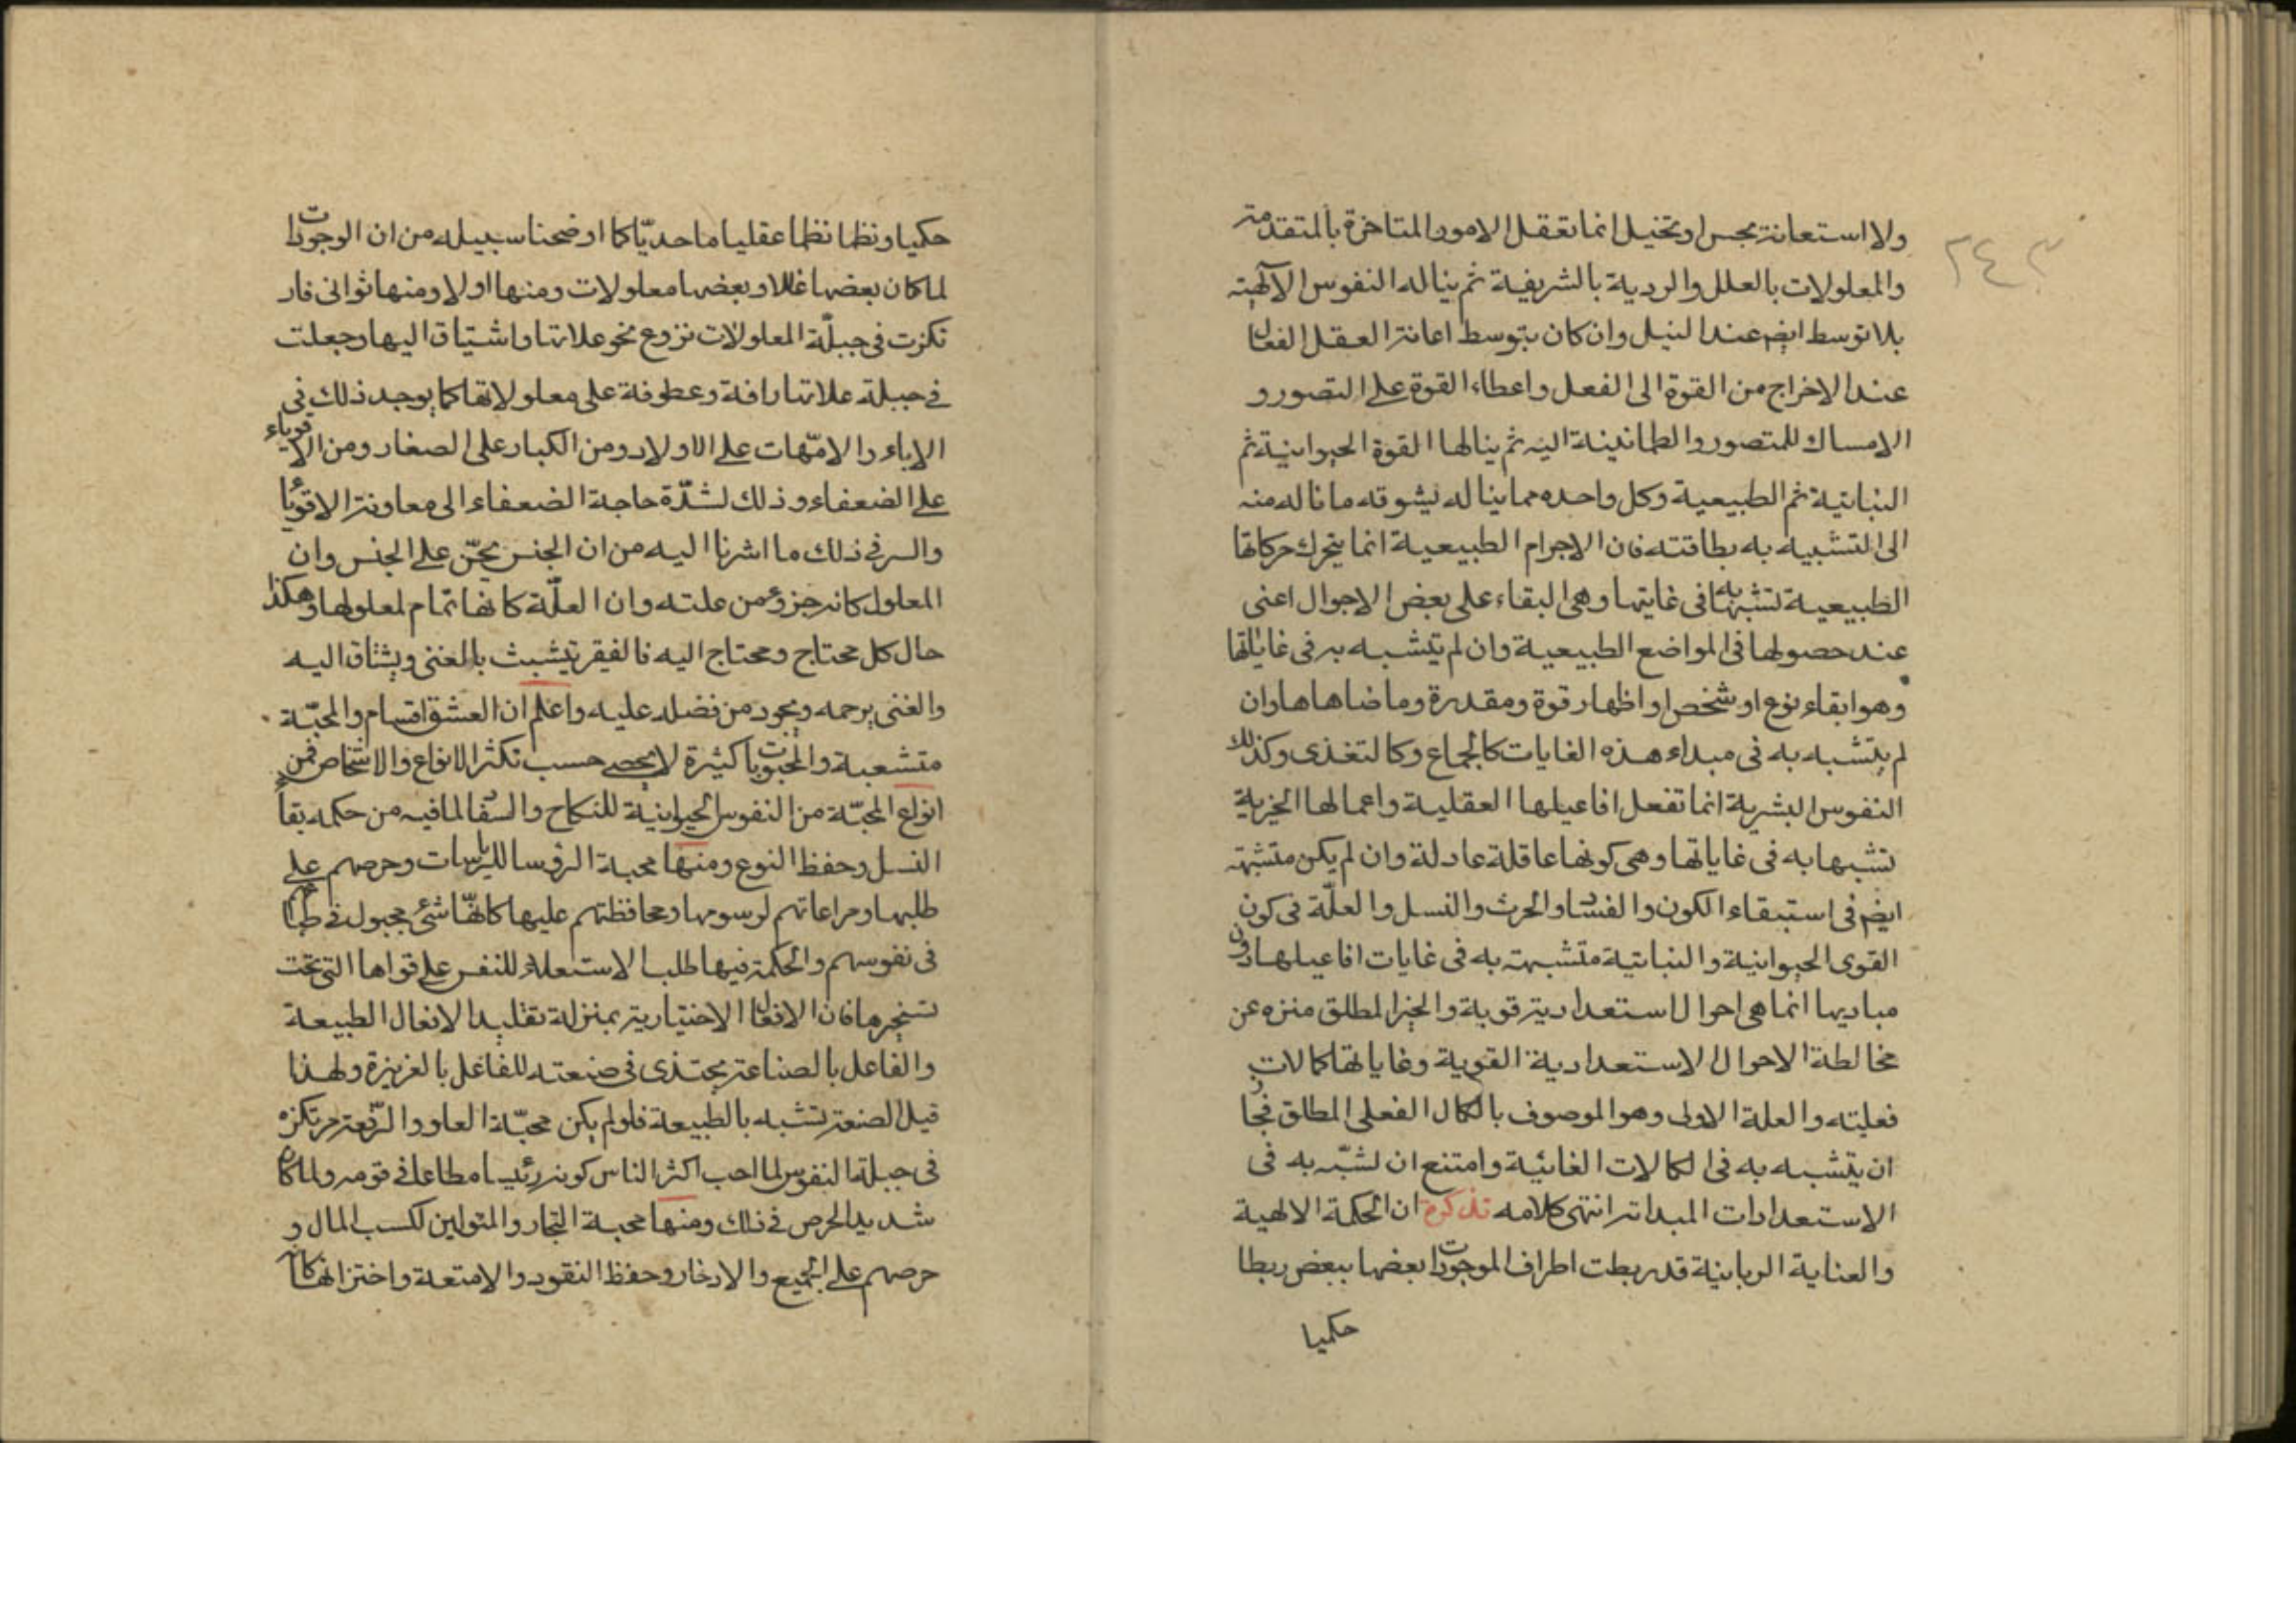 ولا استعانة بحس او تخيل انما تعقل الامور المتاخرة بالمتقدمة
والمعلولات بالعلل والردية بالشريفة ثم يناله النفوس الآلهية
بلا توسط ايضم عند النيل وان كان بتوسط اعانة العقل الفعال
عند الاخراج من القوة الى الفعل واعطاء القوة على التصور و
الامساك للمتصور والطمانينة اليه ثم ينالها القوة الحيوانية ثم
النباتية ثم الطبيعية وكل واحده مما يناله يشوقه ما ناله منه
الى التشبيه به بطاقته فان الاجرام الطبيعية انما يتحرك حركاتها
الطبيعية تشبها به فى غايتها وهى البقاء على بعض الاحوال اعنى
عند حصولها فى المواضع الطبيعية وان لم يتشبه به فى غاياتها
وهو ابقاء نوع او شخص او اظهار قوة ومقدرة وما ضاهاها وان
لم يتشبه به فى مبداء هذه الغايات كالجماع وكالتغذى وكذلك
النفوس البشرية انما تفعل افاعيلها العقلية واعمالها الخيرية
تشبها به فى غاياتها وهى كونها عاقلة عادلة وان لم يكن متشبهة
ايضم فى استبقاء الكون والفساد والحرث والنسل والعلّة فى كون
القوى الحيوانية والنباتية متشبهة به فى غايات افاعيلها دون
مباديها انما هى احوال استعدادية قوية والخير المطلق منزه عن
مخالطة الاحوال الاستعدادية القوية وغاياتها كمالات
فعليته والعلة الاولى وهو الموصوف بالكمال الفعلى المطلق فجاز
ان يتشبه به فى الكمالات الغائية وامتنع ان تشبّه به فى
الاستعدادات المبداتر انتهى كلامه تذكرة ان الحكمة الالهية
والعناية الربانية قد ربطت اطراف الموجودات بعضها ببعض ربطا
حكميا
حكميا ونظما نظما عقليا ما حديّا كما اوضحنا سبيله من ان الوجودات
لما كان بعضها عللا وبعضها معلولات ومنها اولا ومنها ثوانى فار
تكزت فى جبلّة المعلولات نزوع نحو علاتها واشتياق اليها وجعلت
فى جبلة علاتها رافة وعطوفة على معلولاتها كما يوجد ذلك فى
الاباء والامّهات على الاولاد ومن الكبار على الصغار ومن الاقوياء
على الضعفاء وذلك لشدّة حاجة الضعفاء الى معاونة الاقوياء
والسر فى ذلك ما اشرنا اليه من ان الجنس يحنّ على الجنس وان
المعلول كانه جزؤ من علته وان العلّة كانها تمام لمعلولها وهكذا
حال كل محتاج ومحتاج اليه فالفقير يتشبث بالغنى ويشتاق اليه
والغنى يرحمه ويجود من فضله عليه واعلم ان العشق اقسام والمحبّة
متشعبة والمحبوبات كثيرة لا يحصى حسب تكثر الانواع والاشخاص فمن
انواع المحبّة من النفوس الحيوانية للنكاح والسفاد لما فيه من حكمه بقاء
النسل وحفظ النوع ومنها محبة الرؤسا للرياسات وحرصهم على
طلبها ومراعاتهم لرسومها ومحافظتهم عليها كانهّا شئ مجبول فى طباعهم
فى نفوسهم والحكمة فيها طلب الاستعلاء للنفس على قواها التى تحت
تسخيرها فان الافعال الاختيارية بمنزلة تقليد الافعال الطبيعة
والفاعل بالصناعة يحتذى فى صنعته للفاعل بالغريزة ولهذا
قيل الصنعة تشبه بالطبيعة فلو لم يكن محبّة العلو والرّفعة مرتكزه
فى جبلة النفوس لما احب اكثر الناس كونه رئيسا مطاعا فى قومه ولما كان
شديد الحرص فى ذلك ومنها محبة التجار والمتولين لكسب المال و
حرصهم على الجميع والادخار وحفظ النقود والامتعة واختزانها كانه